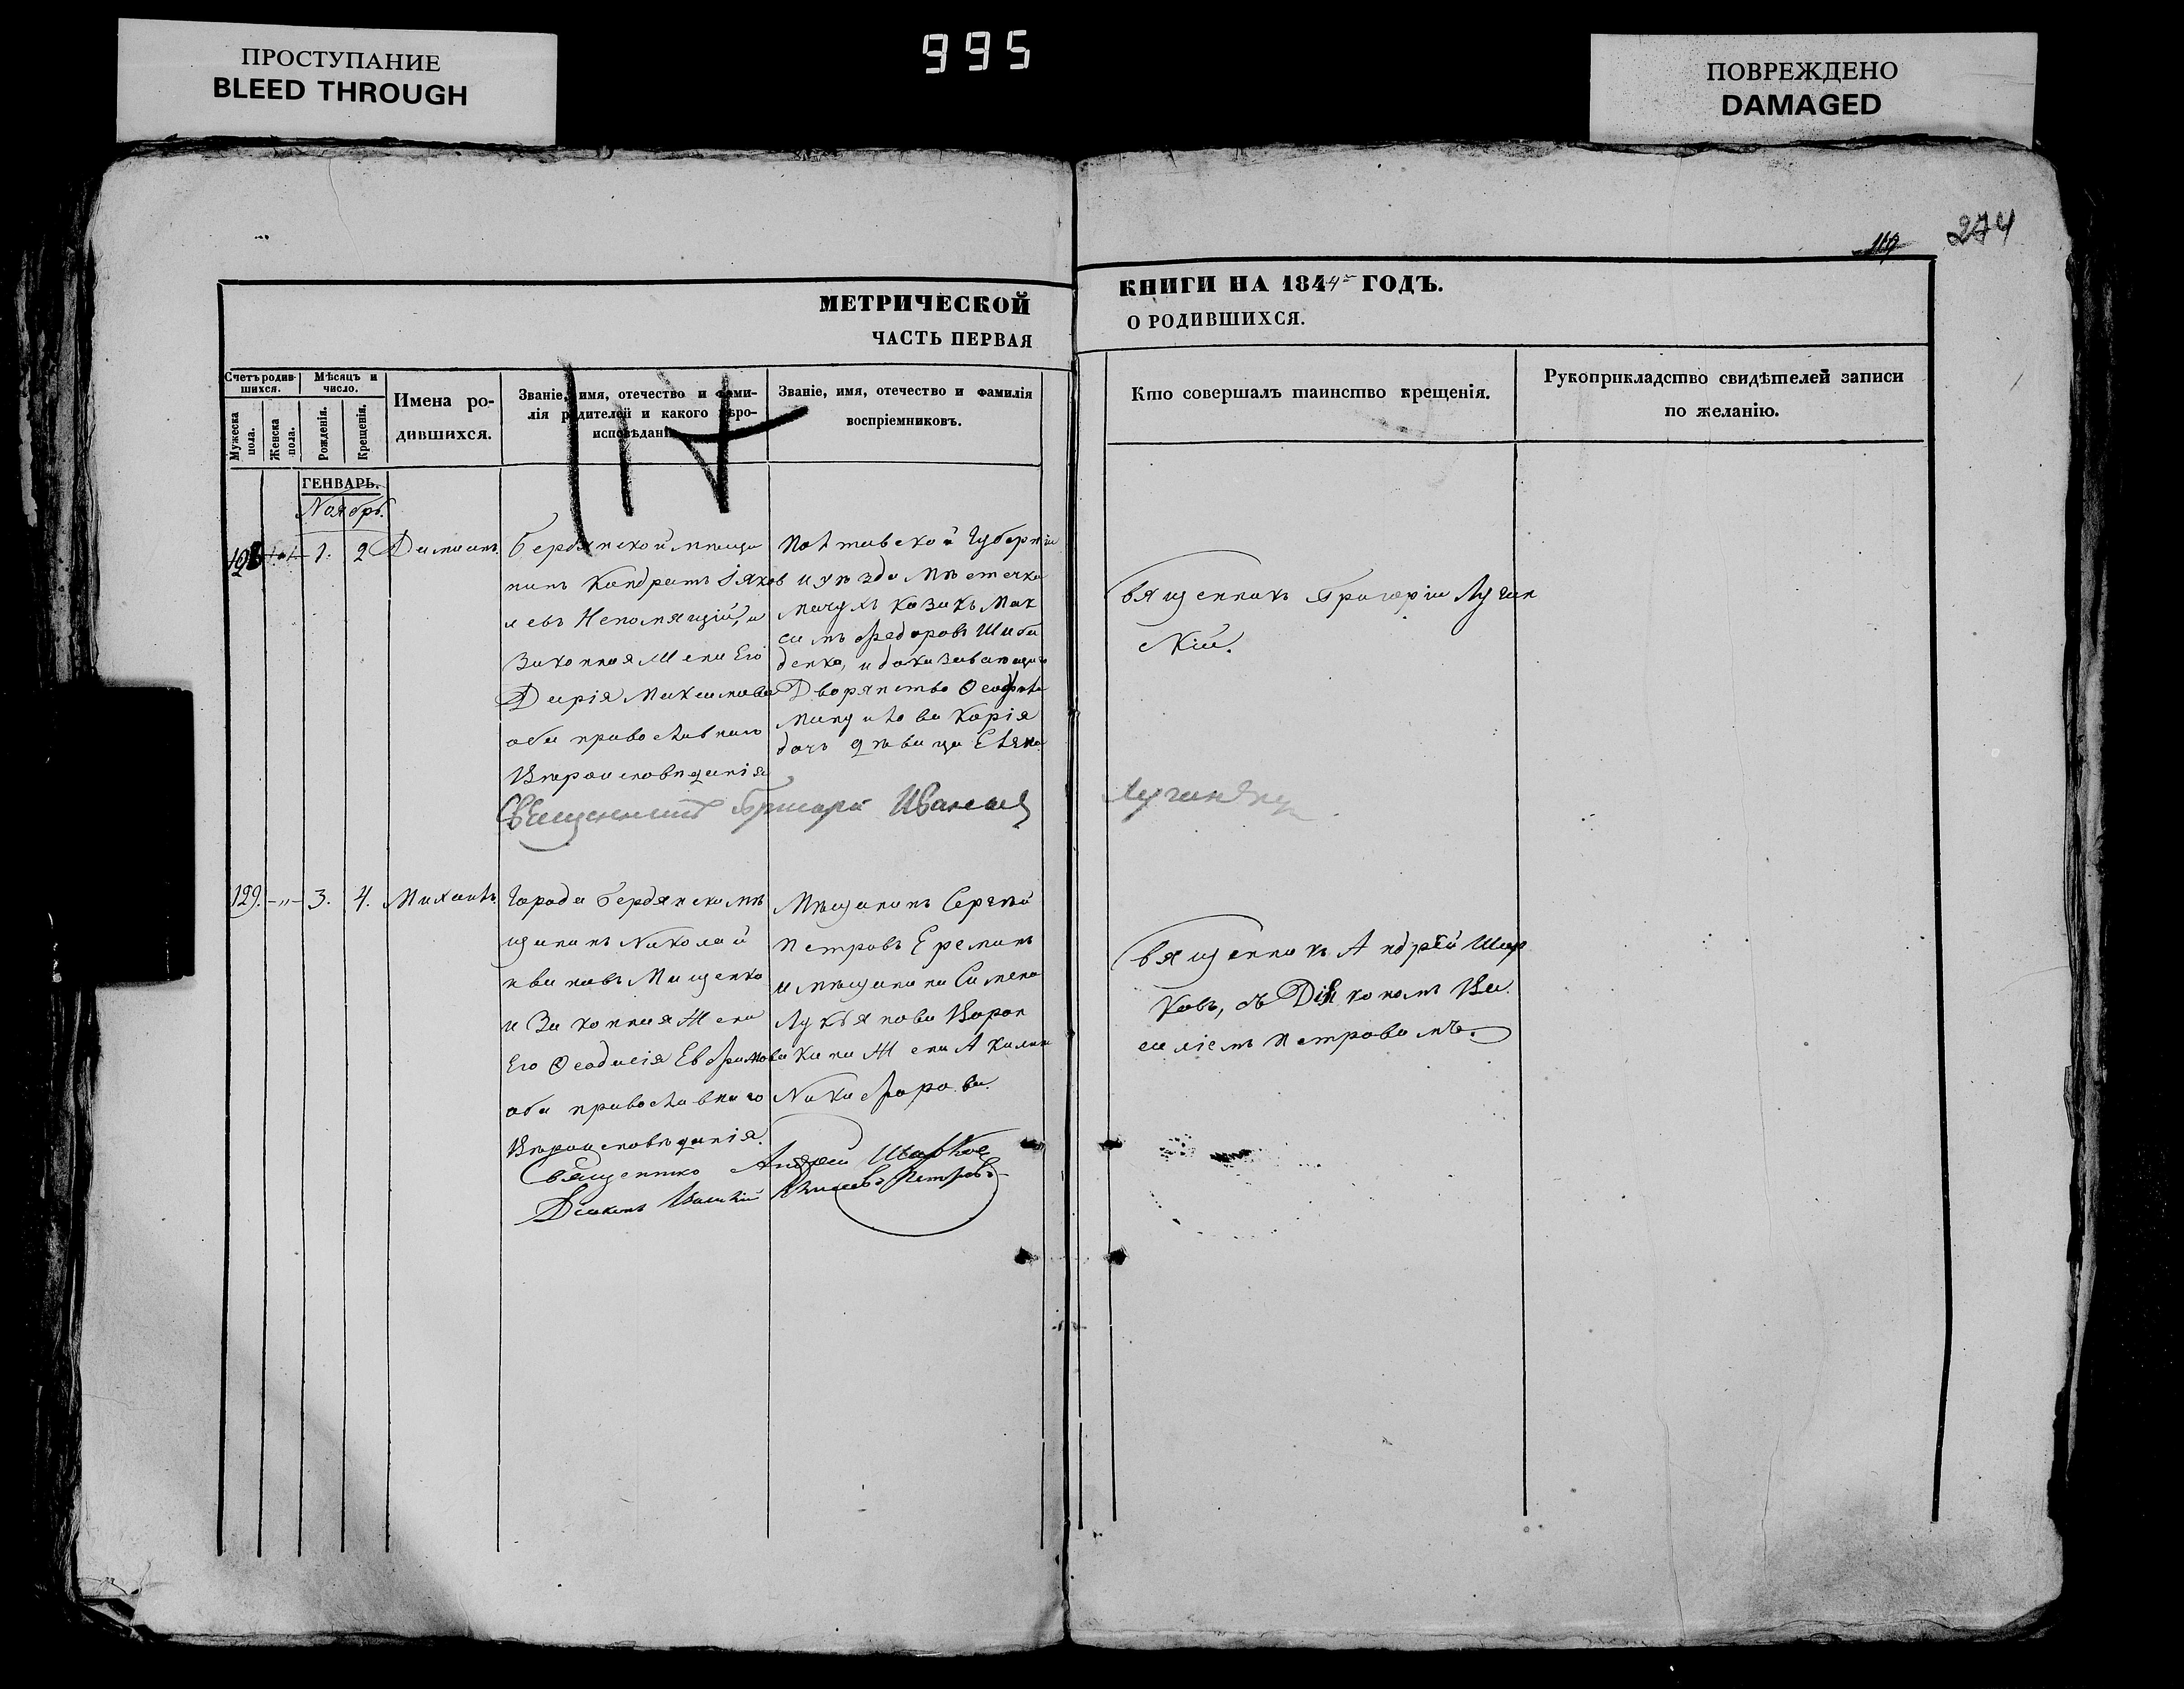 ПРОСТУПАНИЕ
BLEED THROUGH
995
ПОВРЕЖДЕНО
DAMAGED
274
МЕТРИЧЕСКОЙ
ЧАСТЬ ПЕРВАЯ
КНИГИ НА 1844 ГОДЪ.
О РОДИВШИХСЯ.
Счетъ родив-
шихся.
Мужеска
пола.
Женска
пола.
Мѣсяцъ и
число.
Рожденія.
Крещенія.
Имена ро-
дившихся.
Званіе, имя, отечество и фами-
лія родителей и какого вѣро-
исповѣданія
Званіе, имя, отечество и фамилія
воспріемниковъ.
Кто совершалъ таинство крещенія.
Рукоприкладство свидѣтелей записи
по желанію.
ГЕНВАРЬ.
Ноябрь.
128
1.
2
Даміанъ.
Бердянской мѣща
нинъ Кандратъ Іяков
левъ Непомящій, и
Законная Жена Его
Дарія Максимова
оба православнаго
Вѣроисповѣданія
Полтавской Губерніи
и уѣзда Мѣстечка
козакъ Мак
симъ Федоровъ Шаба
денко, и доказывающаго
Дворянство
дочь дѣвица Елена
Священникъ Григорій Лучин
скій.
Священникъ Григорій Иванов
129.
-"-
3.
4.
Михаилъ.
Города Бердянска мѣ
щанинъ Николай
Ивановъ Мищенко
и Законная Жена
Его Ѳеодосія Евфимова
оба православнаго
Вѣроисповѣданія.
Мѣщанинъ Сергѣй
Петровъ Ереминъ
и мѣщанина Симена
Лукьянова Ворон
кина Жена Акилина
Никифорова.
Священникъ Андрей Шар
ковъ, съ Діякономъ Ва
силіемъ Петровымъ.
Священникъ Андрей Шарков
Діаконъ Василій Петровъ